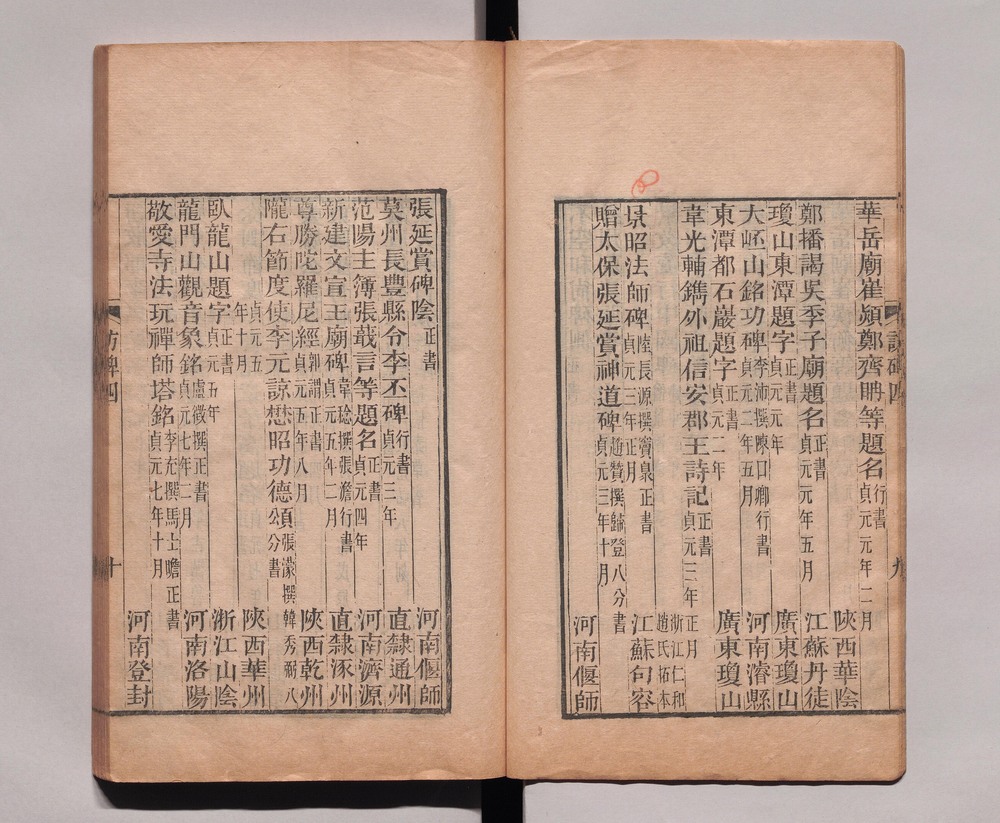 華岳廟崔潁鄭齊聃等題名 行書 貞元元年二月 陝西華陰
鄭播謁吳季子廟題名 正書 貞元元年五月 江蘇丹徒
瓊山東潭題字 正書 貞元元年 廣東瓊山
大岯山銘功碑 李沛撰陳口卿行書 貞元二年五月 河南濬縣
東潭都石巖題字 正書 貞元二年 廣東瓊山
韋光輔鐫外祖信安郡王詩記 正書 貞元三年正月 浙江仁和趙氏拓本
景昭法師碑 陸長源撰竇臮正書 貞元三年正月 江蘇句容
贈太保張延賞神道碑 趙贊撰歸登八分書 貞元三年十月 河南偃師
訪碑四
九
張延賞碑陰 正書 河南偃師
莫州長豐縣令李丕碑 行書 貞元三年 直隸通州
范陽主簿張蕺言等題名 正書 貞元四年 河南濟源
新建文宣王廟碑 韋稔撰張澹行書 貞元五年二月 直隸涿州
尊勝陀羅尼經 郭謂正書 貞元五年八月 陝西乾州
隴右節度使李元諒懋昭功德頌 張濛撰韓秀弼八分書
貞元五年十月 陝西華州
臥龍山題字 正書 貞元五年 浙江山陰
龍門山觀音象銘 盧徵撰正書 貞元七年二月 河南洛陽
敬愛寺法玩禪師塔銘 李充撰馬士瞻正書 貞元七年十月 河南登封
訪碑四
十